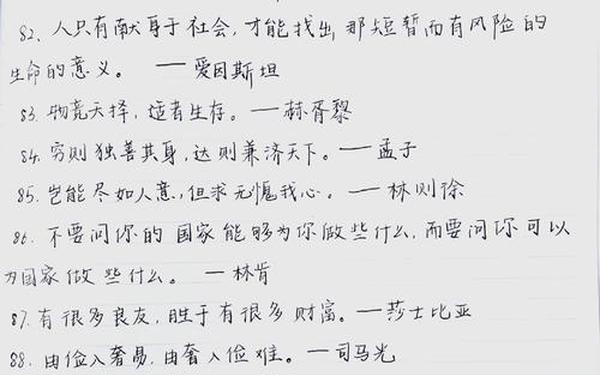 82、人只有献身于社会,才能找出,那短暂而有风险的
生命的意义。 ——爱因斯坦
83.物竞天择,适者生存。——赫胥黎
84.穷则独善其身,达则兼济天下。——孟子
85.岂能尽如人意,但求无愧我心。——林则徐
86.不要问你的国家能够为你做些什么,而要问你可以
为国家做些什么。 ——林肯
87.有很多良友,胜于有很多财富。——莎士比亚
88.由俭入奢易,由奢入俭难。——司马光